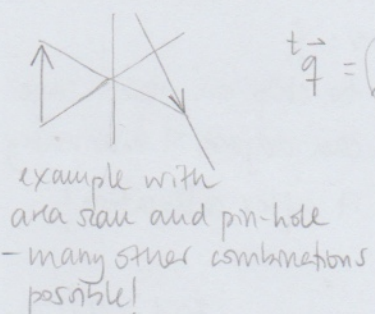 t q⃗ = (
example with
area scan and pin-hole
- many other combinations
possible!